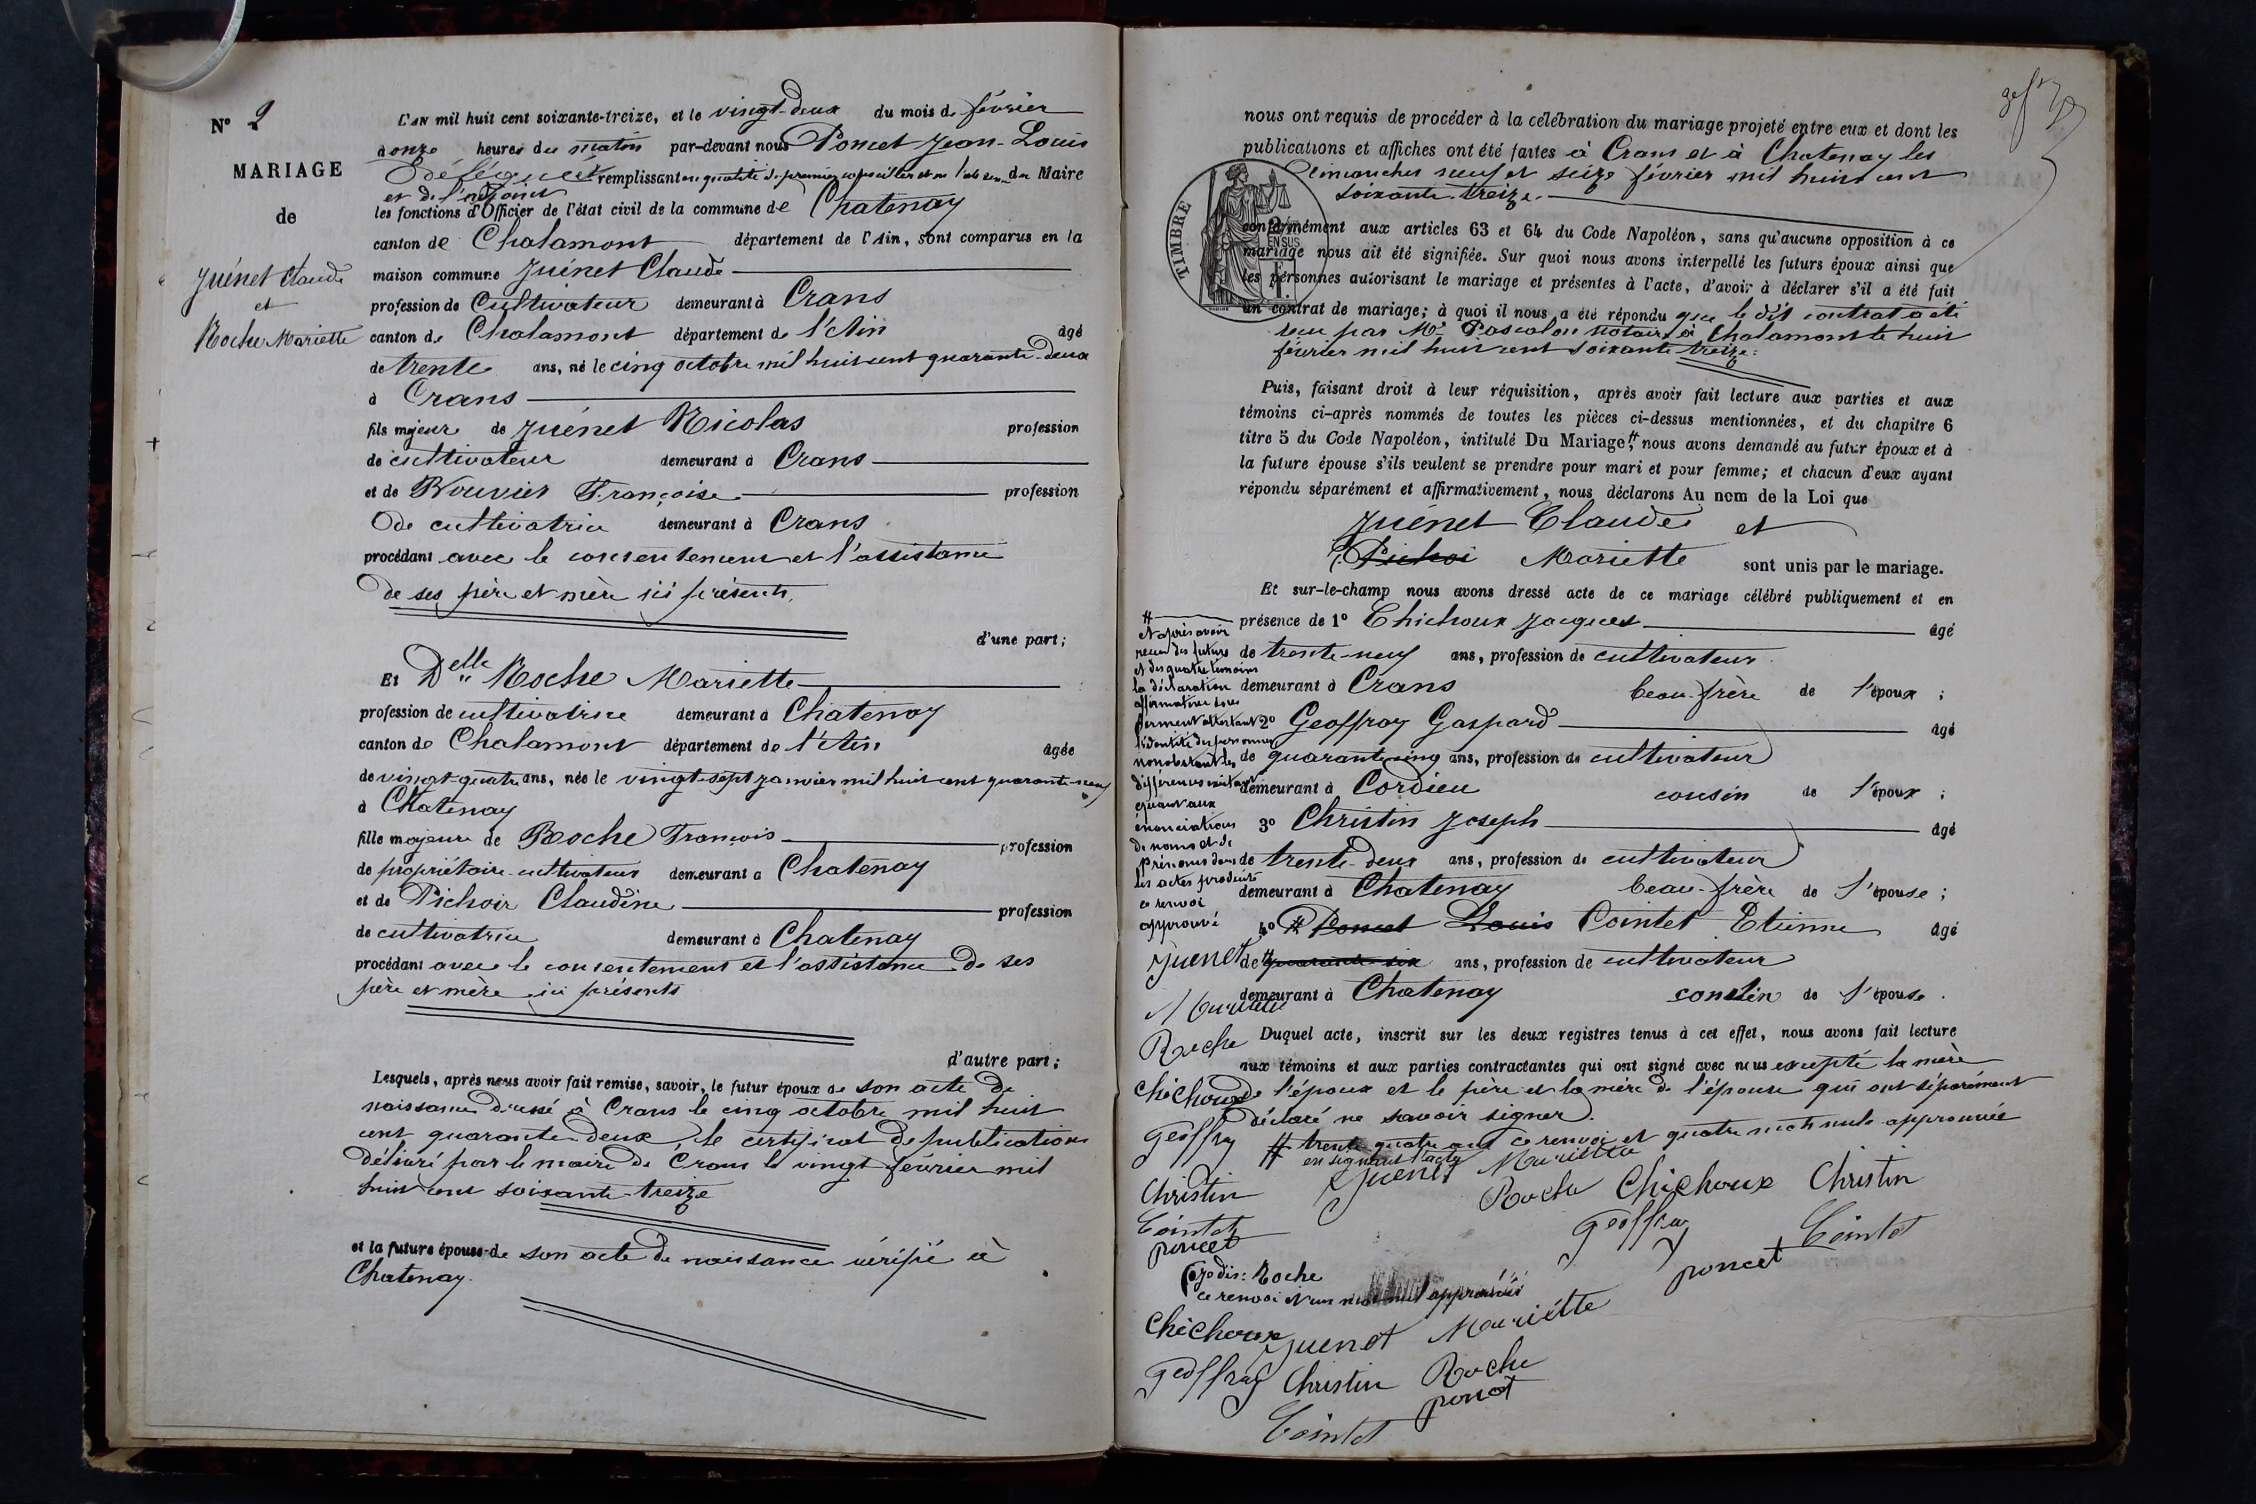 N° 2
MARIAGE
de
Juénet Claude
et
Roche Mariette
L'AN mil huit cent soixante-treize, et le vingt-deux du mois de février
à onze heures du matin par-devant nous Poncet Jean-Louis
Délégué remplissant en qualité de premier conseiller et en l'absence du Maire
et de l'adjoint
les fonctions d'Officier de l'état civil de la commune de Chatenay
canton de Chalamont département de l'Ain, sont comparus en la
maison commune Juénet Claude
profession de Cultivateur demeurant à Crans
canton de Chalamont département de l'Ain âgé
de trente ans, né le cinq octobre mil huit cent quarante-deux
à Crans
fils majeur de Juénet Nicolas profession
de cultivateur demeurant à Crans
et de Bouvier Françoise profession
de cultivatrice demeurant à Crans
procédant avec le consentement et l'assistance
de ses père et mère ici présents,
d'une part;
Et Delle Roche Mariette
profession de cultivatrice demeurant à Chatenay
canton de Chalamont département de l'Ain âgée
de vingt-quatre ans, née le vingt-sept janvier mil huit cent quarante-neuf
à Chatenay
fille majeure de Roche François profession
de propriétaire-cultivateur demeurant à Chatenay
et de Pichoir Claudine profession
de cultivatrice demeurant à Chatenay
procédant avec le consentement et l'assistance de ses
père et mère ici présents
d'autre part;
Lesquels, après nous avoir fait remise, savoir, le futur époux de son acte de
naissance dressé à Crans le cinq octobre mil huit
cent quarante-deux, le certificat de publications
délivré par le maire de Crans le vingt février mil
huit cent soixante-treize
et la future épouse de son acte de naissance vérifié à
Chatenay.
nous ont requis de procéder à la célébration du mariage projeté entre eux et dont les
publications et affiches ont été faites à Crans et à Chatenay les
Dimanches neuf et seize février mil huit cent
soixante-treize.
TIMBRE
EN SUS
conformément aux articles 63 et 64 du Code Napoléon, sans qu'aucune opposition à ce
mariage nous ait été signifiée. Sur quoi nous avons interpellé les futurs époux ainsi que
les personnes autorisant le mariage et présentes à l'acte, d'avoir à déclarer s'il a été fait
un contrat de mariage; à quoi il nous a été répondu que le dit contrat a été
reçu par Me Pascalon notaire à Chalamont le huit
février mil huit cent soixante treize.
Puis, faisant droit à leur réquisition, après avoir fait lecture aux parties et aux
témoins ci-après nommés de toutes les pièces ci-dessus mentionnées, et du chapitre 6
titre 5 du Code Napoléon, intitulé Du Mariage, # nous avons demandé au futur époux et à
la future épouse s'ils veulent se prendre pour mari et pour femme; et chacun d'eux ayant
répondu séparément et affirmativement, nous déclarons Au nom de la Loi que
Juénet Claude et
Pichoi Mariette sont unis par le mariage.
Et sur-le-champ nous avons dressé acte de ce mariage célébré publiquement et en
présence de 1° Chichoux Jacques âgé
de trente-neuf ans, profession de cultivateur
demeurant à Crans beau-frère de l'époux;
2° Geoffray Gaspard âgé
de quarante cinq ans, profession de cultivateur
demeurant à Cordieu cousin de l'époux;
3° Christin Joseph âgé
de trente-deux ans, profession de cultivateur
demeurant à Chatenay beau-frère de l'épouse;
4° # Poncet Louis Cointet Etienne âgé
de # quarante-six ans, profession de cultivateur
demeurant à Chatenay cousin de l'épouse.
Duquel acte, inscrit sur les deux registres tenus à cet effet, nous avons fait lecture
aux témoins et aux parties contractantes qui ont signé avec nous excepté la mère
de l'époux et le père et la mère de l'épouse qui ont séparément
déclaré ne savoir signer.
# trente-quatre ans ce renvoi et quatre mots nuls approuvés
en signant l'acte
Juenet Mariette
Roche Chichoux Christin
Geoffray Cointet
poncet
#
et après avoir
reçu des futurs
et des quatre témoins
la déclaration
affirmative sous
serment attestant
l'identité des personnes
nonobstant les
différences existant
quant aux
énonciations
de noms et de
prénoms dans
les actes produits
ce renvoi
approuvé
Juenet
Mariette
Roche
Chichoux
Geoffray
Christin
Cointet
poncet
je dis: Roche
ce renvoi et un mot nul approuvés
Chichoux Juenet Mauriette
Geoffray Christin Roche
poncet
Cointet